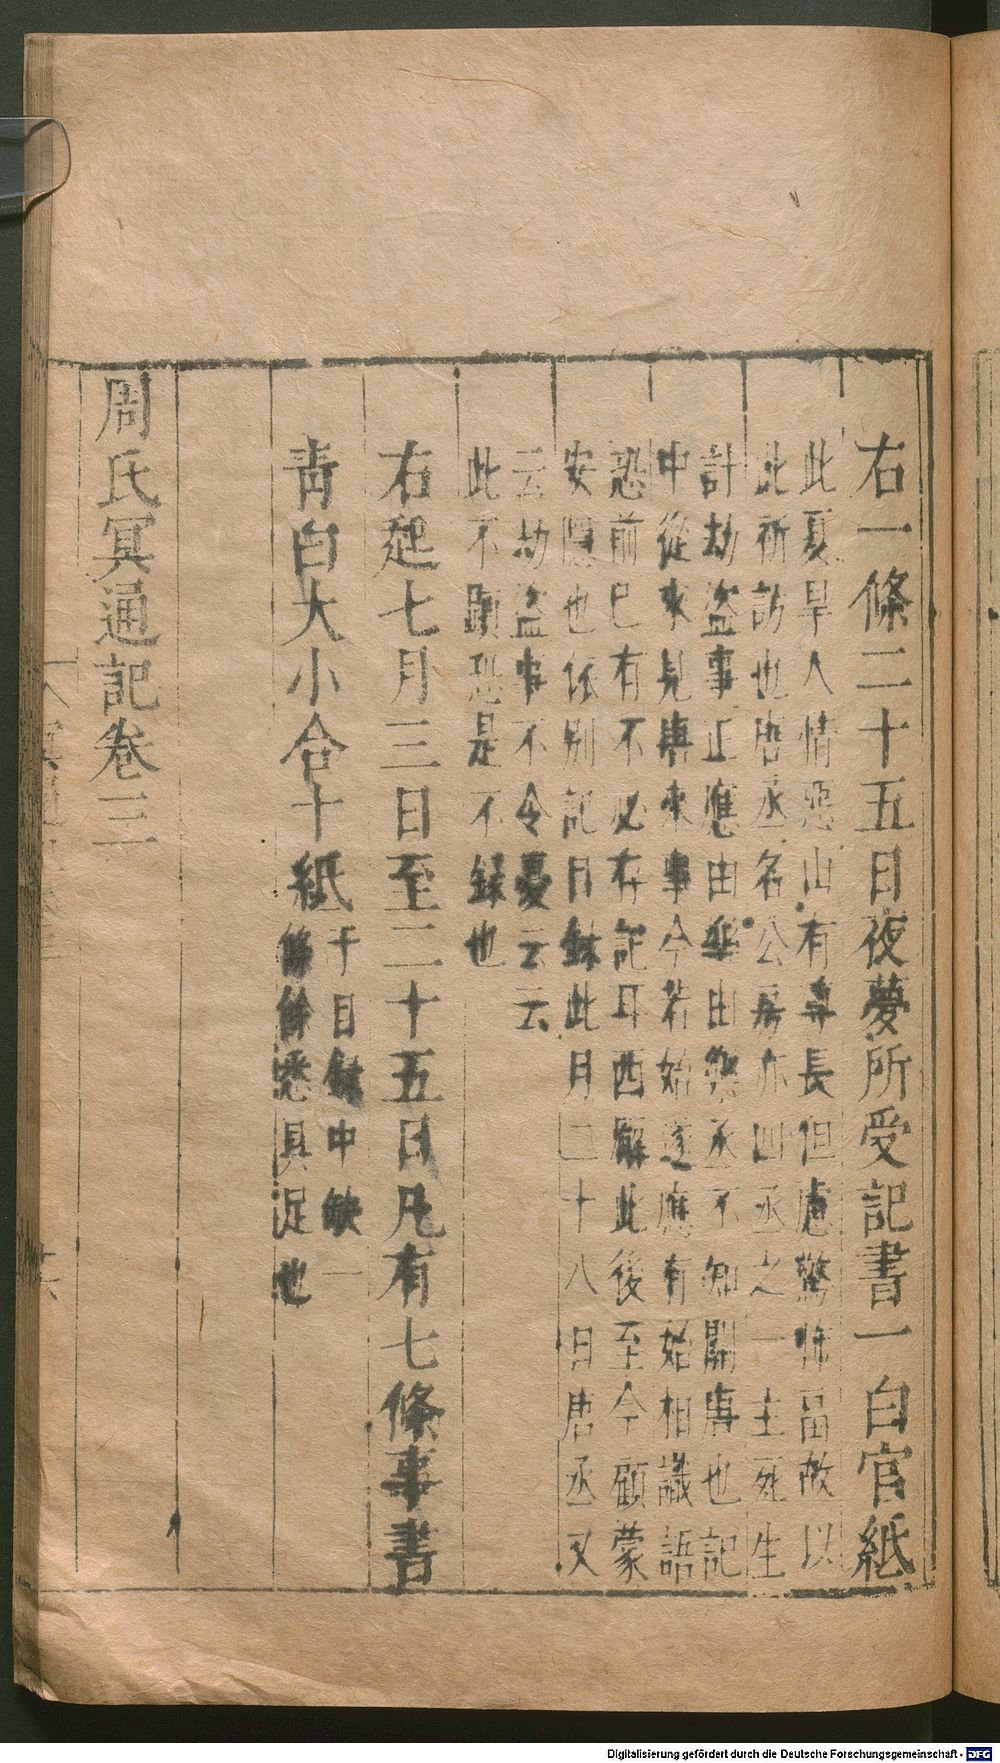 右一條二十五日夜夢所受記書一白官紙
此夏旱人情惡山有寿長但慮驚怖畱故以
此祈訪也唐丞名公房亦四丞之一主死生
計劫盜事正應由此由與丞不知關唐也記
中從來見與來事今若始送應有始相識語
恐前已有不必存記耳西解此後至今顧蒙
安隱也依別記目錄此月二十八日唐丞又
云劫盜事不令憂云云
此不顯恐是不録也
右起七月三日至二十五日凡有七條事書
青白大小合十紙
于目録中缺一
條餘悉具足也
周氏冥通記卷三
Digitalisierung gefördert durch die Deutsche Forschungsgemeinschaft - DFG